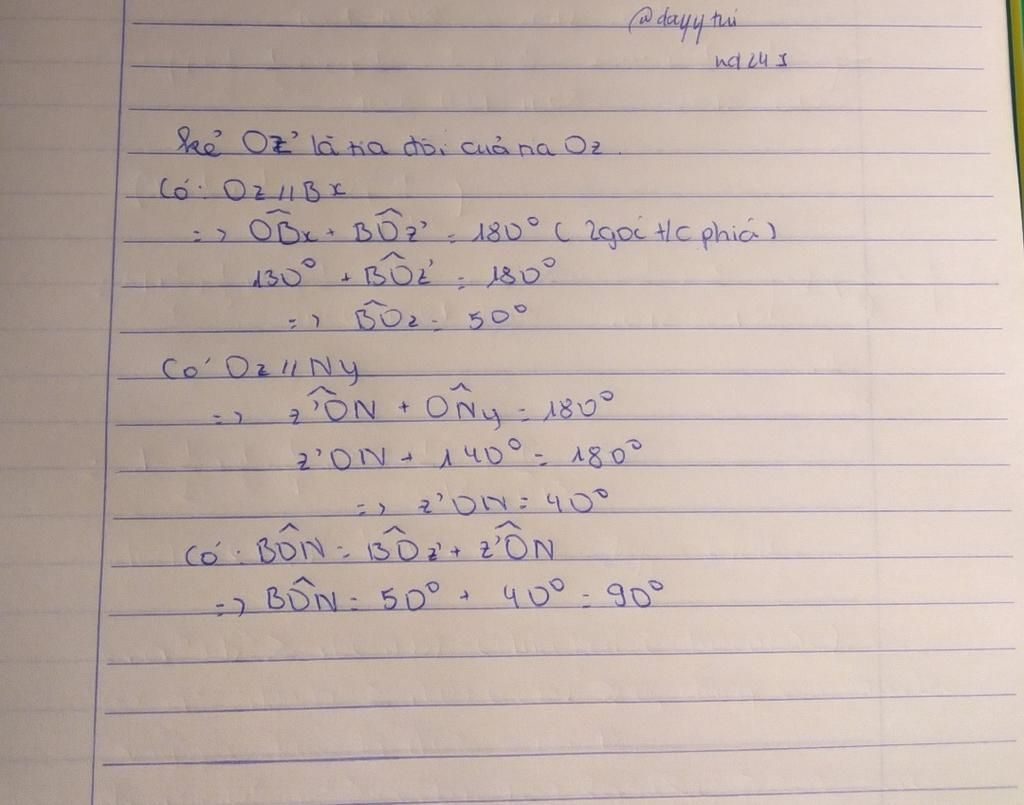 @dayy tui
nd24 s
kẻ Oz' là tia đối của tia Oz.
Có: Oz // Bx
=> OB̂x + BÔz' = 180° ( 2góc t/c phía )
130° + BÔz' = 180°
=> BÔz = 50°
Có Oz // Ny
=> z'ÔN + ON̂y = 180°
z'ON + 140° = 180°
=> z'ON = 40°
Có: BÔN = BÔz' + z'ÔN
=> BÔN = 50° + 40° = 90°